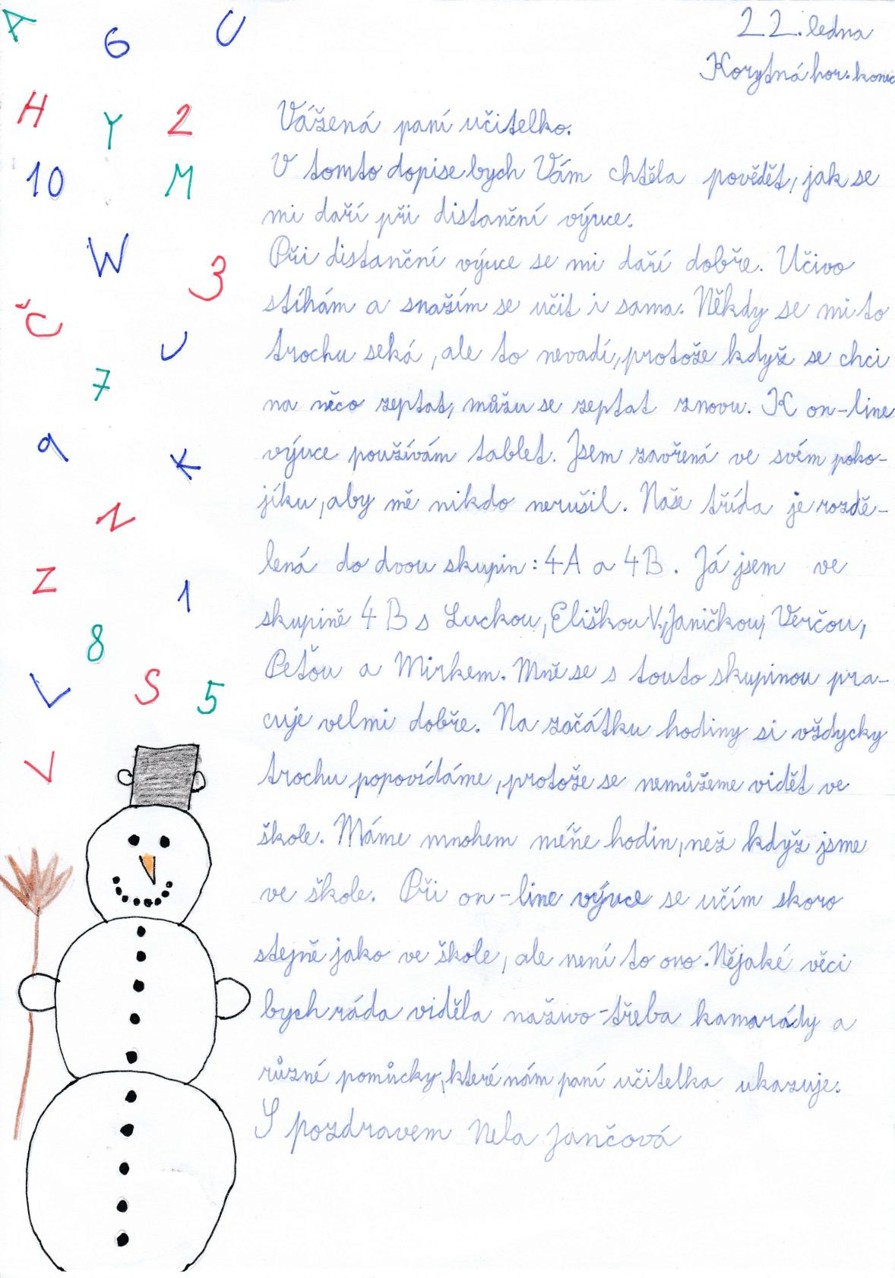 A 6 U
22. ledna
Korytná hor. konec
H Y 2
Vážená paní učitelko.
10 M
V tomto dopise bych Vám chtěla povědět, jak se
mi daří při distanční výuce.
W 3
Při distanční výuce se mi daří dobře. Učivo
stíhám a snažím se učit i sama. Někdy se mi to
Č U
trochu seká, ale to nevadí, protože když se chci
7
na něco zeptat, můžu se zeptat znovu. K on-line
a K
výuce používám tablet. Jsem zavřená ve svém poko-
jíku, aby mě nikdo nerušil. Naše třída je rozdě-
N
lená do dvou skupin: 4A a 4B. Já jsem ve
Z 1
skupině 4B s Luckou, Eliškou V., Janičkou, Verčou,
8
Peťou a Mirkem. Mně se s touto skupinou pra-
L S 5
cuje velmi dobře. Na začátku hodiny si vždycky
V
trochu popovídáme, protože se nemůžeme vidět ve
škole. Máme mnohem méňe hodin, než když jsme
ve škole. Při on-line výuce se učím skoro
stejně jako ve škole, ale není to ono. Nějaké věci
bych ráda viděla naživo-třeba kamarády a
různé pomůcky, které nám paní učitelka ukazuje.
S pozdravem Nela Jančová